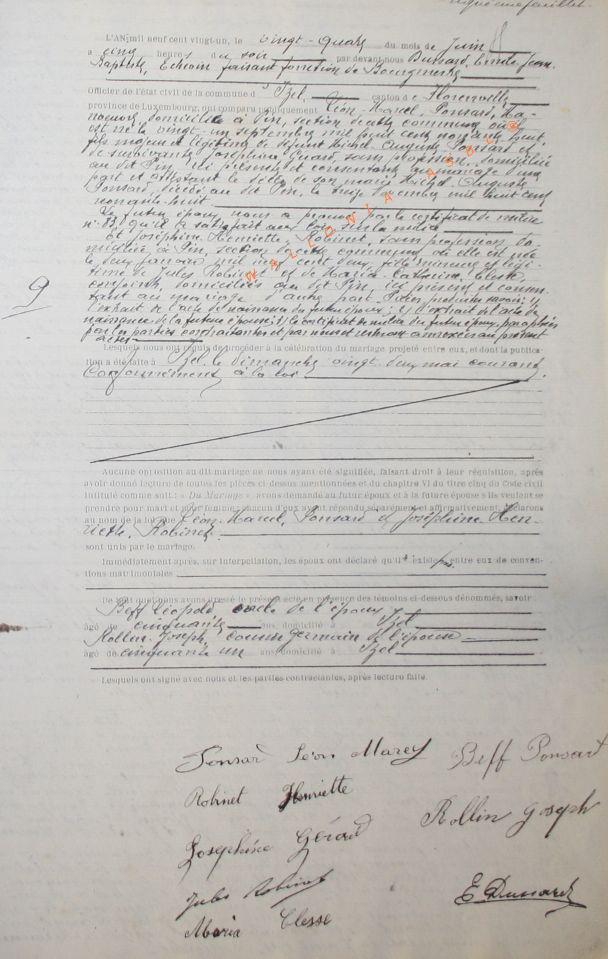 L'AN mil neuf cent vingt-un, le vingt-quatre du mois de Juin
à cinq heures du soir par devant nous Emile Jean
Baptiste, Echevin faisant fonction de Bourgmestre
Officier de l'état civil de la commune d' Izel canton de Florenville
province de Luxembourg, ont comparu publiquement Léon Marcel, Ponsard,
domicilié à Pin, section de cette commune où
est né le vingt-un septembre mil huit cent nonante huit,
fils majeur et légitime de défunt Michel Auguste Ponsard et
de survivante Joséphine, sans profession, domiciliée
au dit Pin, ici présente et consentante au mariage d'une
part et attestant le décès de son mari Michel-Auguste
Ponsard, décédé au dit Pin, le treize décembre mil huit cent
nonante-huit
Le futur époux nous a prouvé par le certificat de milice
n° qu'il a satisfait aux lois sur la milice
Et Joséphine Henriette, Robinet, sans profession, do-
miciliée à Pin, section de cette commune où elle est née
le deux janvier mil neuf cent deux, fille mineure et légi-
time de Jules Robinet et de Maria-Catherine, Clesse
conjoints, domiciliés au dit Pin, ici présents et consen-
tant au mariage d'autre part.
l'extrait de l'acte de naissance du futur époux; 2) l'extrait de l'acte de
naissance de la future épouse; 3) le certificat de milice du futur époux,
par les parties contractantes et par nous et annexés au présent
acte
Lesquels nous ont requis de procéder à la célébration du mariage projeté entre eux, et dont la publica-
tion a été faite à Izel, le dimanche vingt deux mai courant
Conformément à la loi
9
Aucune opposition au dit mariage ne nous ayant été signifiée, faisant droit à leur réquisition, après
avoir donné lecture de toutes les pièces ci-dessus mentionnées et du chapitre VI du titre cinq du Code civil
intitulé comme suit : « Du Mariage » avons demandé au futur époux et à la future épouse s'ils veulent se
prendre pour mari et pour femme; chacun d'eux ayant répondu séparément et affirmativement, déclarons
au nom de la loi que Léon-Marcel, Ponsard et Joséphine Hen-
riette, Robinet
sont unis par le mariage.
Immédiatement après, sur interpellation, les époux ont déclaré qu'il n'existe pas entre eux de conven-
tions matrimoniales
De tout quoi nous avons dressé le présent acte en présence des témoins ci-dessus dénommés, savoir
Beff Léopold oncle de l'époux
âgé de cinquante ans domicilié à Izel
Rollin Joseph, cousin germain de l'épouse
âgé de cinquante un ans domicilié à Izel
Lesquels ont signé avec nous et les parties contractantes, après lecture faite.
Ponsard Léon Marcel Beff Ponsart
Robinet Henriette
Rollin Joseph
Joséphine Gérard
Jules Robinet
Maria Clesse
WALLONIA ASBL